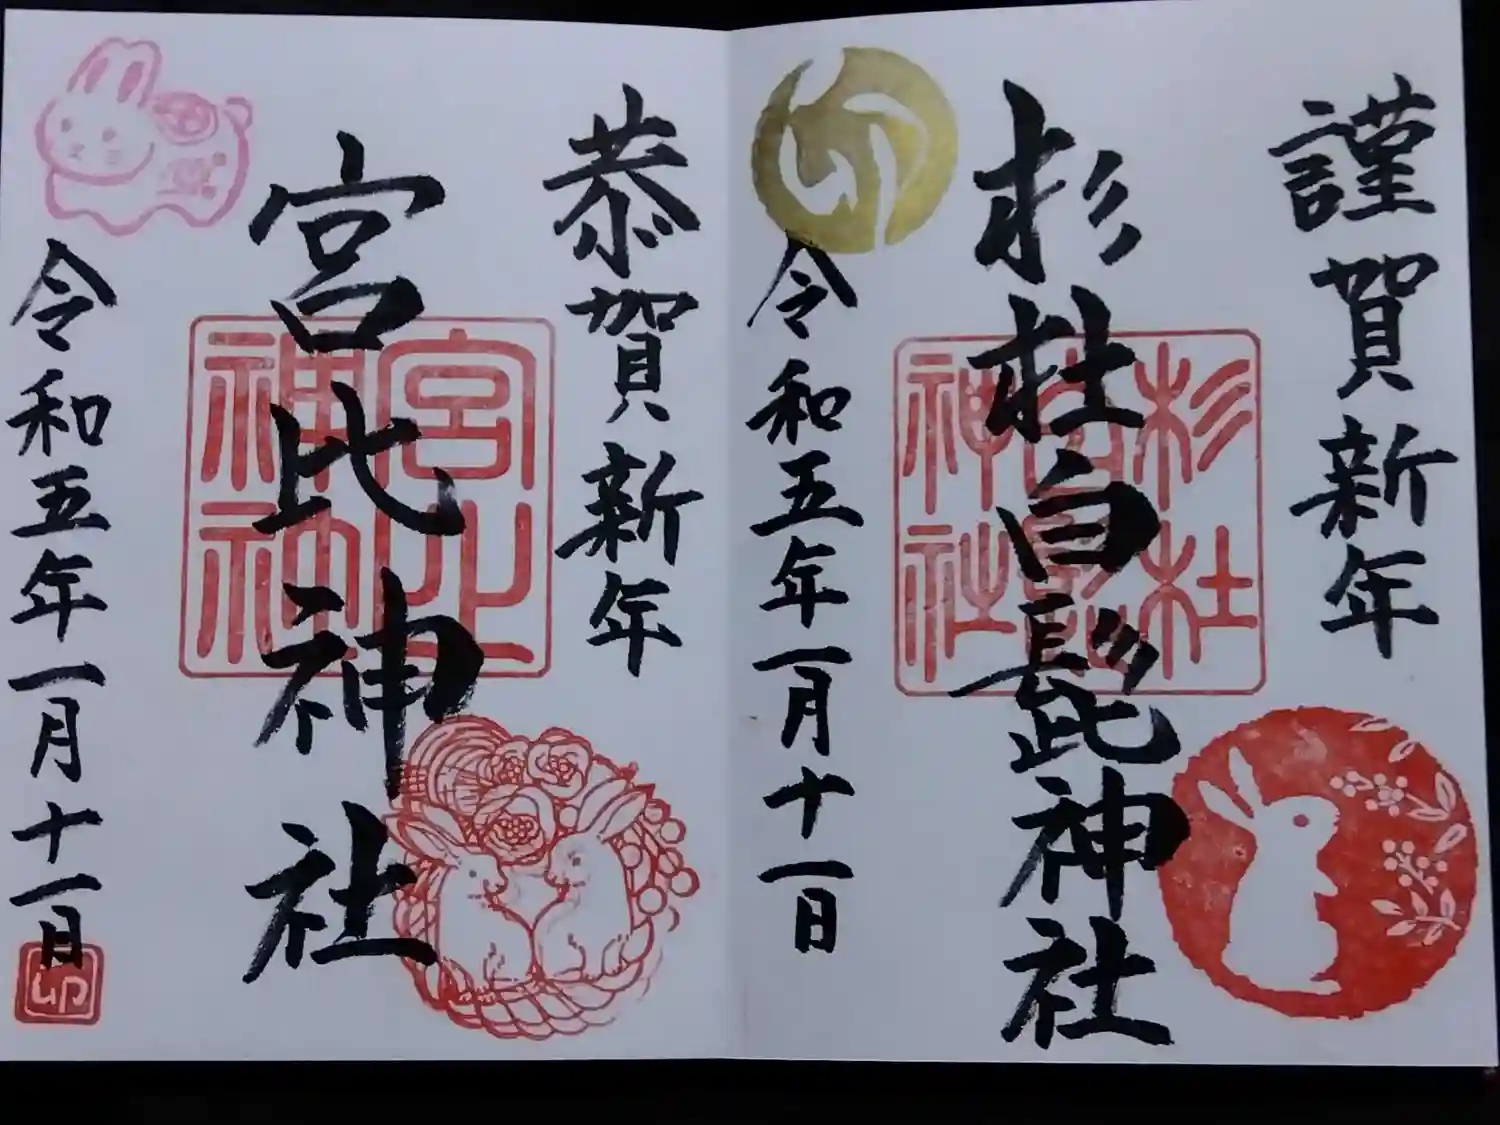 謹賀新年
杉杜白髭神社
杉杜白髭神社
卯
令和五年一月十一日
恭賀新年
宮比神社
宮比神社
令和五年一月十一日
卯